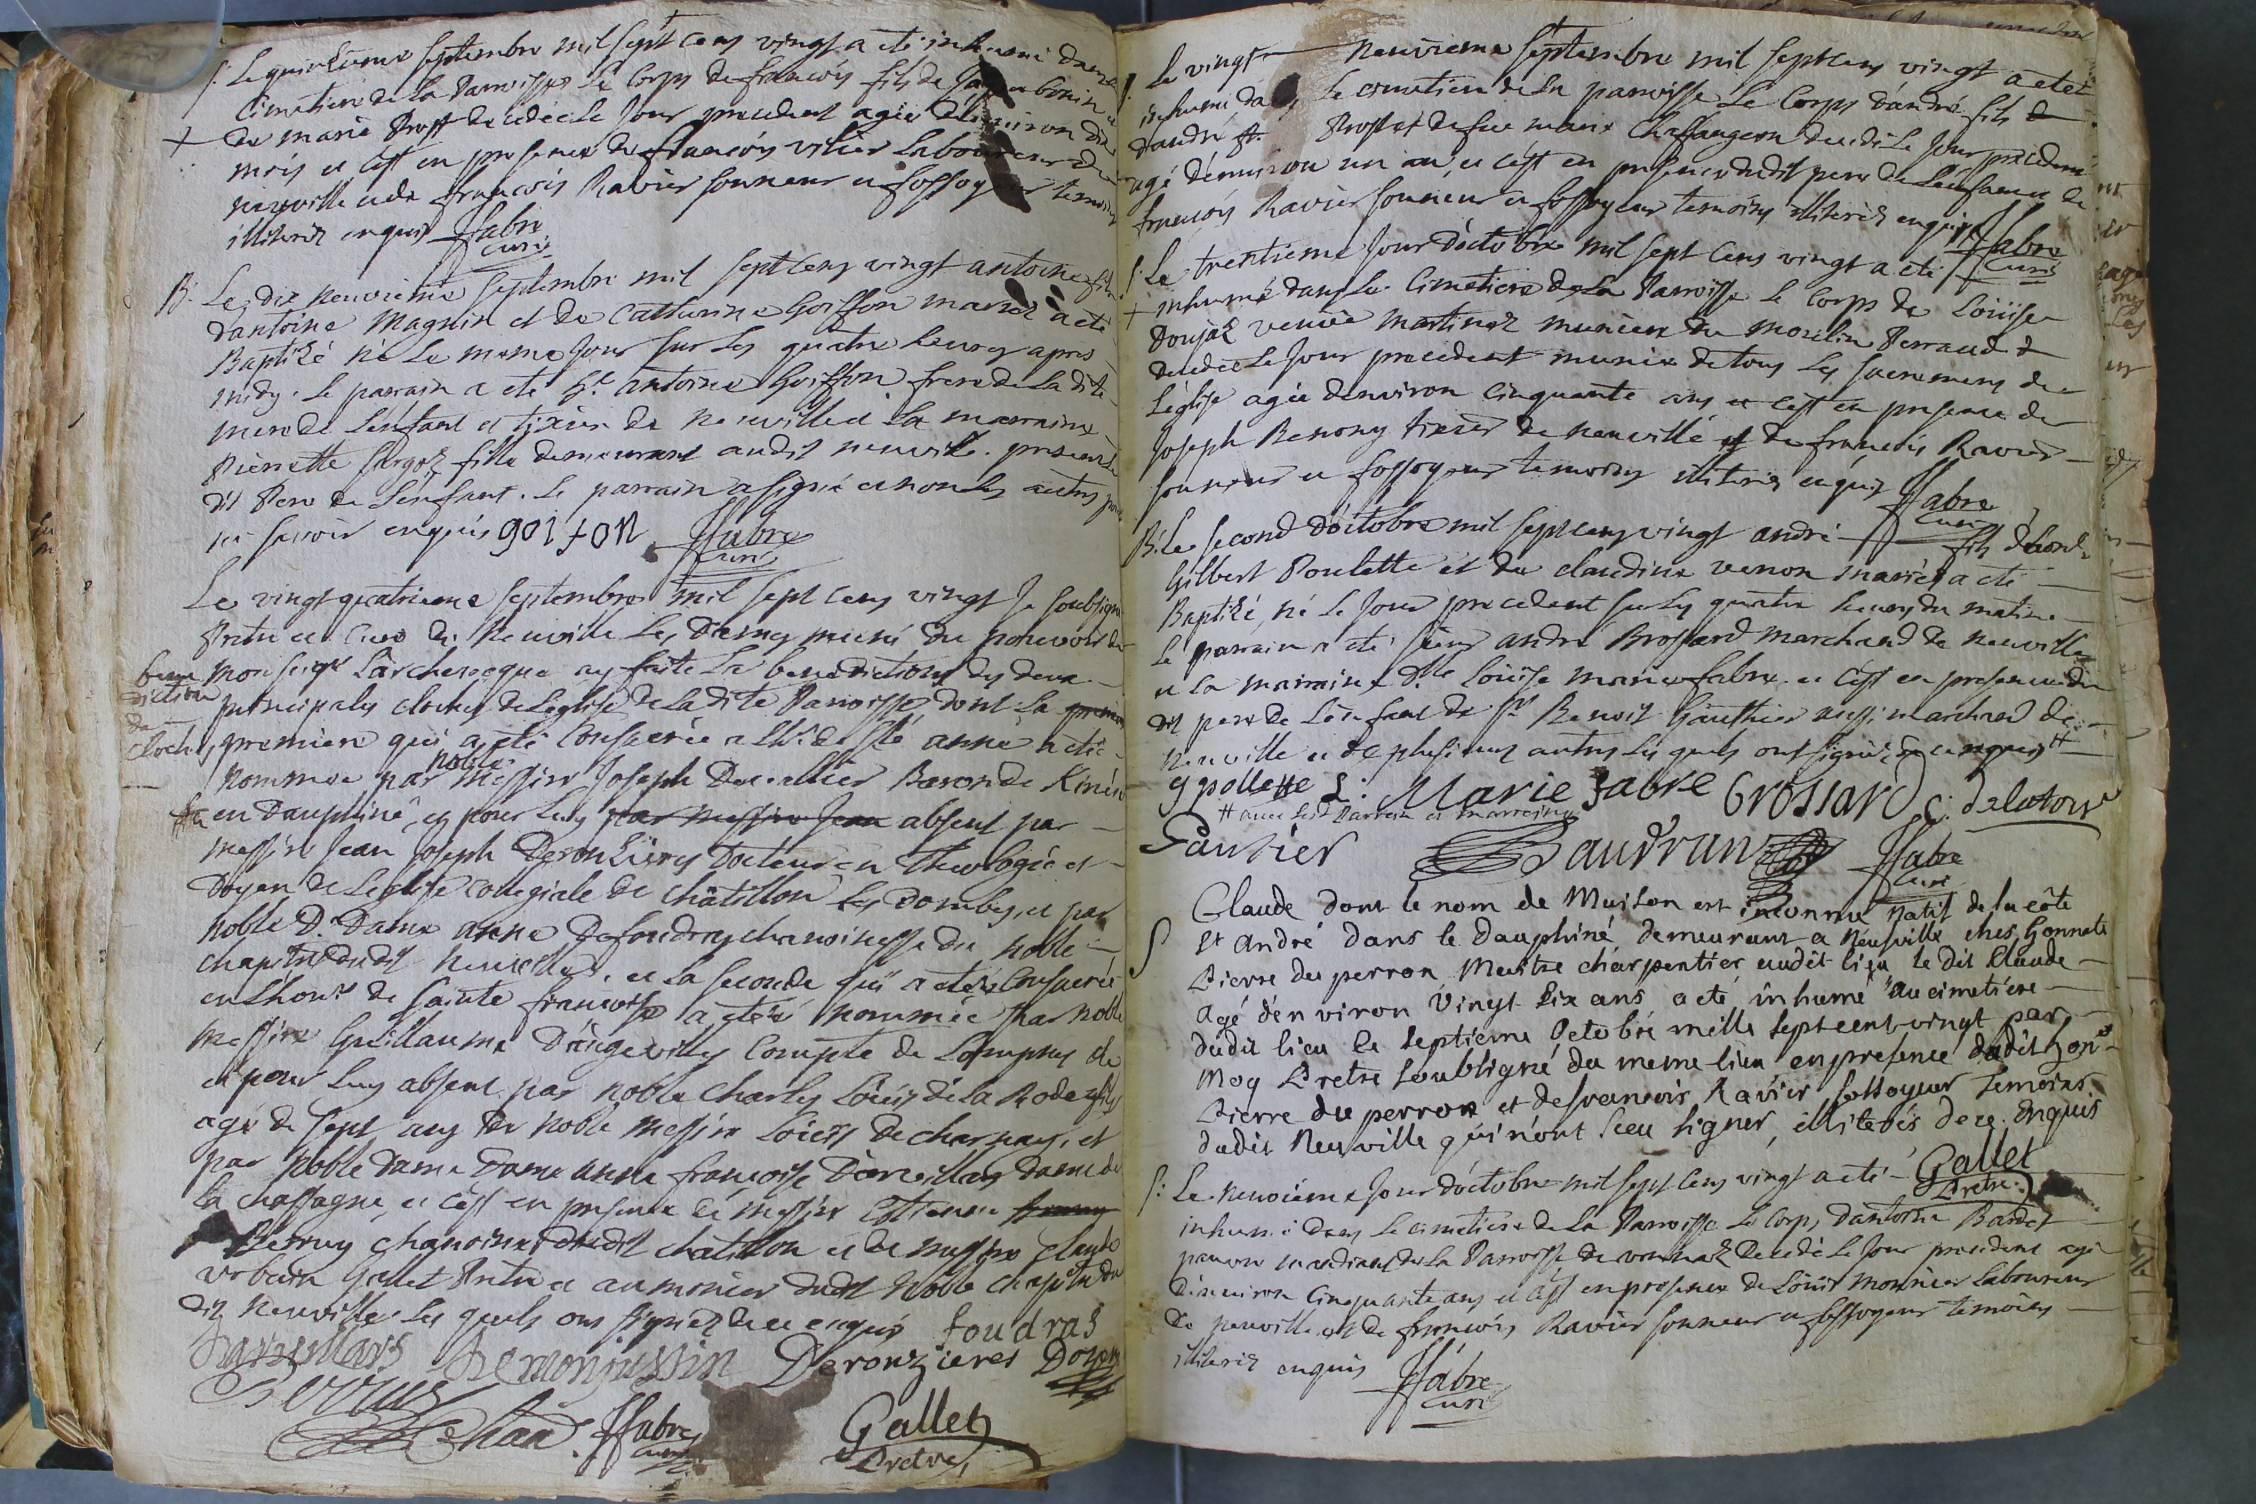 S: Le quinzieme septembre mil sept cens vingt a eté inhumé dans le
Cimetiere de la Parroisse le Corps de francois fils de bonin et
+ de marie Prost decedée le Jour precedent agée denviron dix
mois et c'est en presence de francois vilier laboureur de
neuville et de francois Ravier sonneur et fossoyeur temoins
illiterez enquis ffabre
curé
B. Le dix neuvieme septembre mil sept cens vingt antoine fils
d'antoine Magnin et de Catherine Goiffon mariez a eté
Baptizé né le meme Jour sur les quatre heures apres
midy. le parrain a eté Sr. antoine Goiffon frere de la dite
mere de l'enfant et tixier de neuville et la marraine
Pierrette fille demeurant audit neuville. presens le
dit Pere de l'enfant. le parrain a signé et non les autres pour
ne savoir enquis goifon ffabre
curé
Le vingt quatrieme septembre mil sept cens vingt Je soubsigné
Pretre et Curé de Neuville les Dames muni du pouvoir de
bene monseigr L'archeveque ay faite la benediction des deux
diction principales cloches de l'eglise de la dite Parroisse dont la
de
cloches premiere qui a eté consacrée a lhr. de Ste anne a eté
nommée par noble messire Joseph Baron de
en Dauphiné, et pour luy par messire Jean absent par
messire Jean Joseph Deronzieres Docteur en Theologie et
Doyen de L'eglise collegiale de châtillon les Dombes, et par
noble D. Dame anne De foudras chanoinesse du noble
chapitre dudit neuville. et la seconde qui a eté consacrée
en L'honr. de sainte francoise a eté nommée par noble
Messire Guillaume D'angeville Compte de Lompnes
et pour luy absent par noble Charles Loüis de la Rode fils
agé de sept ans de noble messire de charnay, et
par noble dame Dame anne francoise Dame de
la chassagne, et c'est en presence de messire Estienne
Perruy chanoine dudit chatillon et de messire claude
urbain Gallet Pretre et aumonier dudit Noble chapitre du
dit neuville les quels ons signez de ce enquis foudras
Demonjussin Deronzieres Doyen
Perruy
ffabre
curé
Gallet
Pretre
S: Le vingt neuvieme septembre mil sept cens vingt a eté
inhumé dans le cimetiere de la parroisse le Corps d'andré fils
d'andré Prost et de feue marie Chassangeon decedé le Jour precedent
agé d'environ un an et c'est en presence dudit pere de l'enfant et de
francois Ravier sonneur et fossoyeur temoins illiterez enquis ffabre
curé
S: Le trentieme Jour d'octobre mil sept cens vingt a eté
+ inhumé dans le Cimetiere de la Parroisse le Corps de Loüise
Donjat veuve Martinet muniere du moulin Perraud
decedée le Jour precedent munie de tous les sacremens de
l'eglise agée denviron cinquante ans et c'est en presence de
Joseph Benony tixier de neuville et de francois Ravier
sonneur et fossoyeur temoins illiterez enquis ffabre
curé
B: Le second d'octobre mil sept cens vingt andré fils
Gilbert Poulette et de claudine venon mariés a eté
Baptizé, né le Jour precedent sur les quatre heures du matin
le parrain a eté sieur andré Brossard marchand de neuville
et la marraine dlle. Loüise marie fabre et c'est en presence du
dit pere de l'enfant de Sr. Benoit Gauthier aussi marchand de
Neuville et de plusieurs autres les quels ont signé de ce enquis #
g pollette L. Marie fabre brossard C. delatour
# avec lesd. Parrein et marreine
Gautier Baudran ffabre
curé
Claude dont le nom de Maison est inconnu natif de la côte
S St André dans le Dauphiné, demeurant a Neuville ches honnete
Pierre du perron Maitre charpentier audit lieu, le dit Claude
agé d'environ vingt six ans a eté inhumé au cimetiere
dudit lieu le septieme Octobre mille sept cent vingt par
Moy Pretre soubsigné du meme lieu en presence dudit honte
Pierre du perron et de francois Ravier fossoyeur temoins
dudit Neuville qui n'ont sceu signer, illiterés de ce enquis
Gallet
Pretre
S: Le neuvieme Jour d'octobre mil sept cens vingt a eté
inhumé dans le cimetiere de la Parroisse le Corps d'antoine Bardet
pauvre mandiant de la Parroisse de decedé le Jour precedent agé
d'environ cinquante ans et c'est en presence de Loüis monnier laboureur
de neuville et de francois Ravier sonneur et fossoyeur temoins
illiterez enquis ffabre
curé